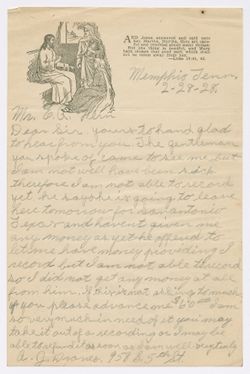 AND Jesus answered and said unto
her, Martha, Martha, thou art careful
and troubled about many things:
But one thing is needful; and Mary
hath chosen that good part, which shall
not be taken away from her.
—Luke 10:41, 42
Memphis Tenn.
2-28-28
Mr.
Dear sir yours to hand glad
to hear from you. The gentleman
you spoke of came to see me but
I am not well have been sick
therefore I am not able to record
yet he says he is going to leave
here tomorrow for San Antonio
Texas and havent given me
any money as yet he offered to
let me have money providing I
record but I am not able to record
so I did not get any money at all
from him. If it is not asking to much
of you please advance me I am
so very much in need of it you may
take it out of a recording or I may be
able to refund it as soon as I am well
A. J. 958 E. 5th St